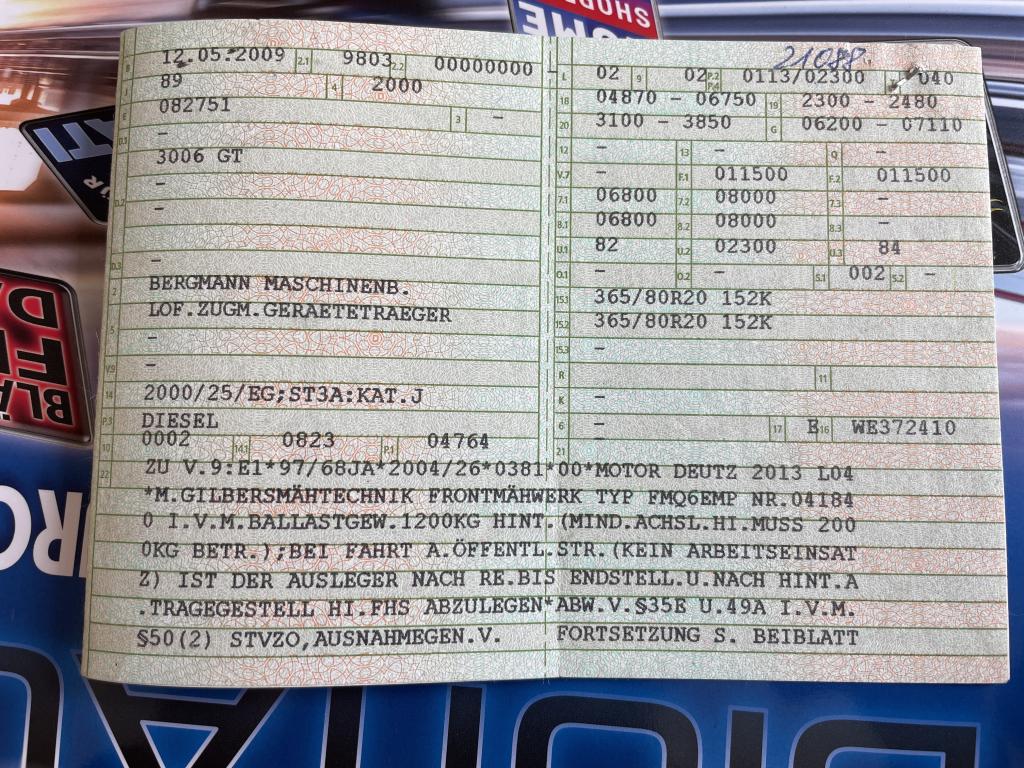 21088
B 12.05.2009 2.1 9803 2.2 00000000 L 02 9 02 P.2 P.4 0113/02300 040
J 89 4 2000 18 04870 - 06750 19 2300 - 2480
E 082751 3 - 20 3100 - 3850 G 06200 - 07110
D.1 - 12 - 13 - Q -
3006 GT V.7 - F.1 011500 F.2 011500
D.2 - 7.1 06800 7.2 08000 7.3 -
- 8.1 06800 8.2 08000 8.3 -
U.1 82 U.2 02300 U.3 84
D.3 - O.1 - O.2 - S.1 002 S.2 -
2 BERGMANN MASCHINENB. 15.1 365/80R20 152K
LOF.ZUGM.GERAETETRAEGER 15.2 365/80R20 152K
5 - 15.3 -
V.9 - R 11
14 2000/25/EG;ST3A:KAT.J K -
P.3 DIESEL 6 - 17 E 16 WE372410
10 0002 14.1 0823 P.1 04764 21 -
22 ZU V.9:E1*97/68JA*2004/26*0381*00*MOTOR DEUTZ 2013 L04
*M.GILBERSMÄHTECHNIK FRONTMÄHWERK TYP FMQ6EMP NR.04184
0 I.V.M.BALLASTGEW.1200KG HINT.(MIND.ACHSL.HI.MUSS 200
0KG BETR.);BEI FAHRT A.ÖFFENTL.STR.(KEIN ARBEITSEINSAT
Z) IST DER AUSLEGER NACH RE.BIS ENDSTELL.U.NACH HINT.A
.TRAGEGESTELL HI.FHS ABZULEGEN*ABW.V.§35E U.49A I.V.M.
§50(2) STVZO,AUSNAHMEGEN.V. FORTSETZUNG S. BEIBLATT